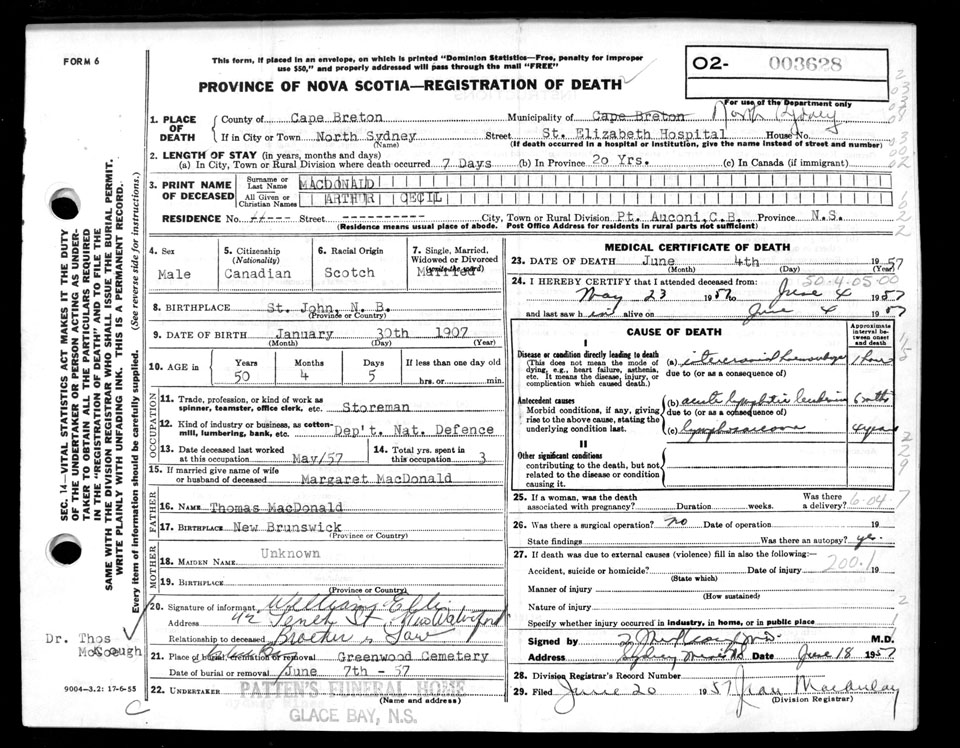 FORM 6
This form, if placed in an envelope, on which is printed "Dominion Statistics—Free, penalty for improper
use $50," and properly addressed will pass through the mail "FREE"
O2- 003628
For use of the Department only
PROVINCE OF NOVA SCOTIA—REGISTRATION OF DEATH
1. PLACE OF DEATH
County of Cape Breton Municipality of Cape Breton North Sydney
If in City or Town North Sydney Street St. Elizabeth Hospital House No.
(Name) (If death occurred in a hospital or institution, give the name instead of street and number)
2. LENGTH OF STAY (in years, months and days)
(a) In City, Town or Rural Division where death occurred 7 Days (b) In Province 20 Yrs. (c) In Canada (if immigrant)
3. PRINT NAME OF DECEASED
Surname or Last Name MACDONALD
All Given or Christian Names ARTHUR CECIL
RESIDENCE No. ---- Street ---------- City, Town or Rural Division Pt. Auconi, C.B. Province N.S.
(Residence means usual place of abode. Post Office Address for residents in rural parts not sufficient)
4. Sex
Male
5. Citizenship (Nationality)
Canadian
6. Racial Origin
Scotch
7. Single, Married, Widowed or Divorced (write the word)
Married
8. BIRTHPLACE St. John, N. B.
(Province or Country)
9. DATE OF BIRTH January 30th 1907
(Month) (Day) (Year)
10. AGE in
Years Months Days If less than one day old
50 4 5 hrs. or min.
OCCUPATION
11. Trade, profession, or kind of work as
spinner, teamster, office clerk, etc. Storeman
12. Kind of industry or business, as cotton-
mill, lumbering, bank, etc. Dep't. Nat. Defence
13. Date deceased last worked
at this occupation May/57
14. Total yrs. spent in
this occupation 3
15. If married give name of wife
or husband of deceased Margaret MacDonald
FATHER
16. NAME Thomas MacDonald
17. BIRTHPLACE New Brunswick
(Province or Country)
MOTHER
18. MAIDEN NAME Unknown
19. BIRTHPLACE
(Province or Country)
20. Signature of informant William
Address 42 Tenth St. New Waterford
Relationship to deceased Brother in Law
21. Place of burial, cremation or removal Greenwood Cemetery
Date of burial or removal June 7th - 57
22. UNDERTAKER PATTEN'S FUNERAL HOME
(Name and address)
GLACE BAY, N.S.
Dr. Thos
McKeough
9004—3.2: 17-6-55
C
MEDICAL CERTIFICATE OF DEATH
23. DATE OF DEATH June 4th 1957
(Month) (Day) (Year)
24. I HEREBY CERTIFY that I attended deceased from: 50-4-05-00
May 23 1957 to June 4 1957
and last saw him alive on June 4 1957
CAUSE OF DEATH
Approximate interval between onset and death
I
Disease or condition directly leading to death
(This does not mean the mode of
dying, e.g., heart failure, asthenia,
etc. It means the disease, injury, or
complication which caused death.)
(a) intercranial hemorrhage 1 hour
due to (or as a consequence of)
Antecedent causes
Morbid conditions, if any, giving
rise to the above cause, stating the
underlying condition last.
(b) acute lymphatic leukemia 6 mths
due to (or as a consequence of)
(c) lymphosarcoma 4 years
II
Other significant conditions
contributing to the death, but not
related to the disease or condition
causing it.
25. If a woman, was the death
associated with pregnancy? Duration weeks. Was there a delivery? 6-04-7
26. Was there a surgical operation? no Date of operation 19
State findings Was there an autopsy? yes.
27. If death was due to external causes (violence) fill in also the following:—
Accident, suicide or homicide? Date of injury 19
200.1
(State which)
Manner of injury
(How sustained)
Nature of injury
Specify whether injury occurred in industry, in home, or in public place
Signed by M.D.
Address Sydney Mines N.S. Date June 18 1957
28. Division Registrar's Record Number
29. Filed June 20 1957 Jean Macaulay
(Division Registrar)
SEC. 14—VITAL STATISTICS ACT MAKES IT THE DUTY
OF THE UNDERTAKER OR PERSON ACTING AS UNDER-
TAKER TO OBTAIN ALL THE PARTICULARS REQUIRED
IN THE "REGISTRATION OF DEATH" AND TO FILE THE
SAME WITH THE DIVISION REGISTRAR WHO SHALL ISSUE THE BURIAL PERMIT.
WRITE PLAINLY WITH UNFADING INK. THIS IS A PERMANENT RECORD.
Every item of information should be carefully supplied. (See reverse side for instructions.)